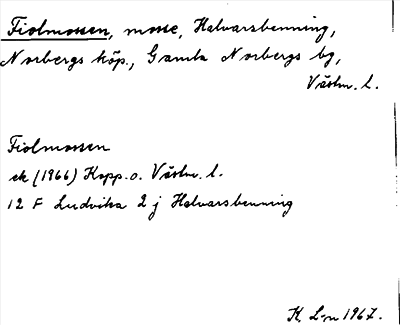 Fiolmossen, mosse, Halvarsbenning,
Norbergs köp., Gamla Norbergs bg,
Västm. l.
Fiolmossen
ek (1966) Kopp. o. Västm. l.
12 F Ludvika 2 j Halvarsbenning
K. L-m 1967.